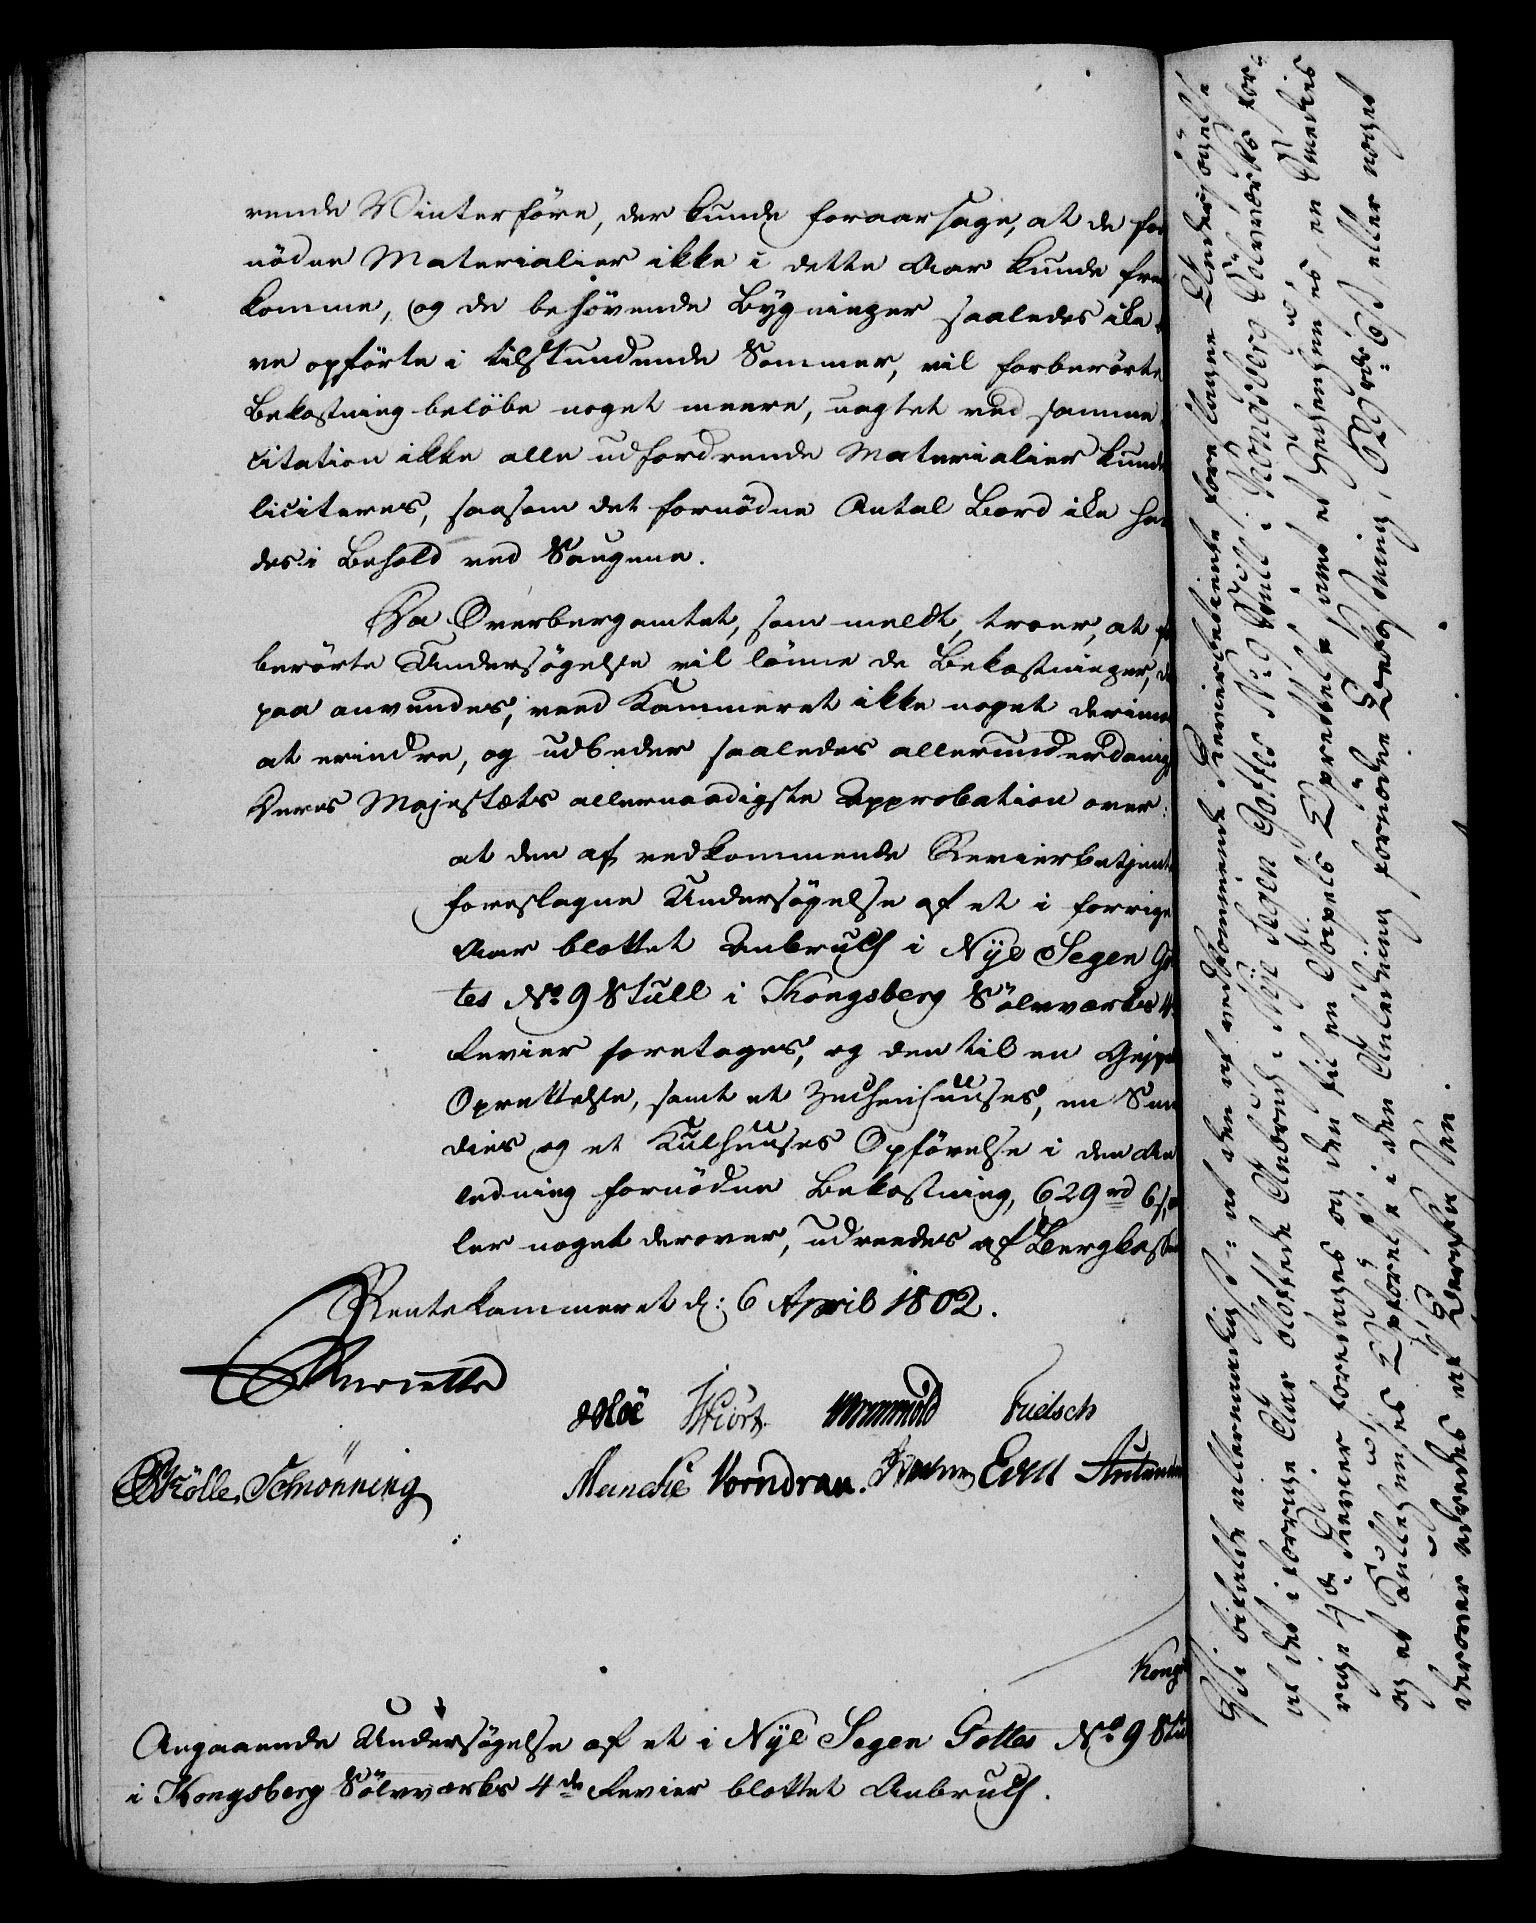 rende Vinterföre, der kunde foraarsage, at de for
nödne Materialier ikke i dette Aar kunde frem
komme, og de behövende Bÿgninger saaledes ike
ve opförte i tilstundende Sommer, vil forberörte
Bekostning belöbe noget meere, uagtet ved samme
citation ikke alle udfordrende Materialier kunde
liciteres, saasom det fornödne Antal Bord ike hav
des i Behold ved Saugene.
Da Overbergamtet, som meldt, troer, at
berörte Undersögelse vil lönne de Bekostninger, d
paa anvendes, veed Kammeret ikke noget derimod
at erindre, og udbeder saaledes allerunderdanigst
Deres Majestæts allernaadigste Approbation over:
at den af vedkommende Revierbetjente
foreslagne Undersögelse af et i forrige
Aar blottet Anbruch i Nÿe Segen Got
tes No 9 Stull i Kongsberg Sölvværks 4
Revier foretages, og den til en Geipels
Oprettelse, samt et Zechenhuuses, en Sme
dies og et Kulhuuses Opförelse i den An
ledning fornödne Bekostning, 629 rd 6 s, el
ler noget derover, udreedes af Bergkassen
Rentekammeret d: 6 April 1802.
Moe Hiort Wormskiold Fridsch
Schiönning Munche Vorndran.
Kongs
Angaaende Undersögelse af et i Nÿe Segen Gottes No 9 Stul
i Kongsberg Sölvværks 4de Revier blottet Anbruch.
Vi bifalde allernaadigst: at den af vedkommende Revierbetiente foreslagne Undersögelse
af det i forrige Aar blottede Anbruch i Nÿe Segen Gottes No 9 Stull i Kongsberg Sölvværks for-
rige 4de Revier foretages og den til en Göpels Oprettelse samt et Zechenhuuses, en Smedies
og et Kullehuuses Opförelse i den Anledning fornödne Bekostning, 629 rdr 6 s, eller noget
derover udredes af Bergkassen.